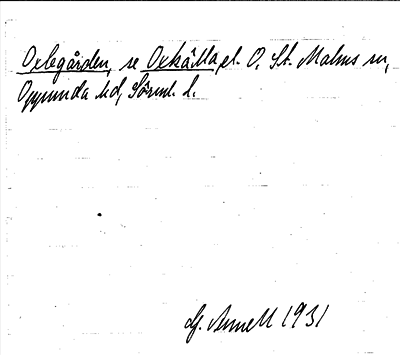 Oxlegården, se Oxkälla, el. O. St. Malms sn,
Oppunda hd, Sörml. l.
af. Arnell 1931